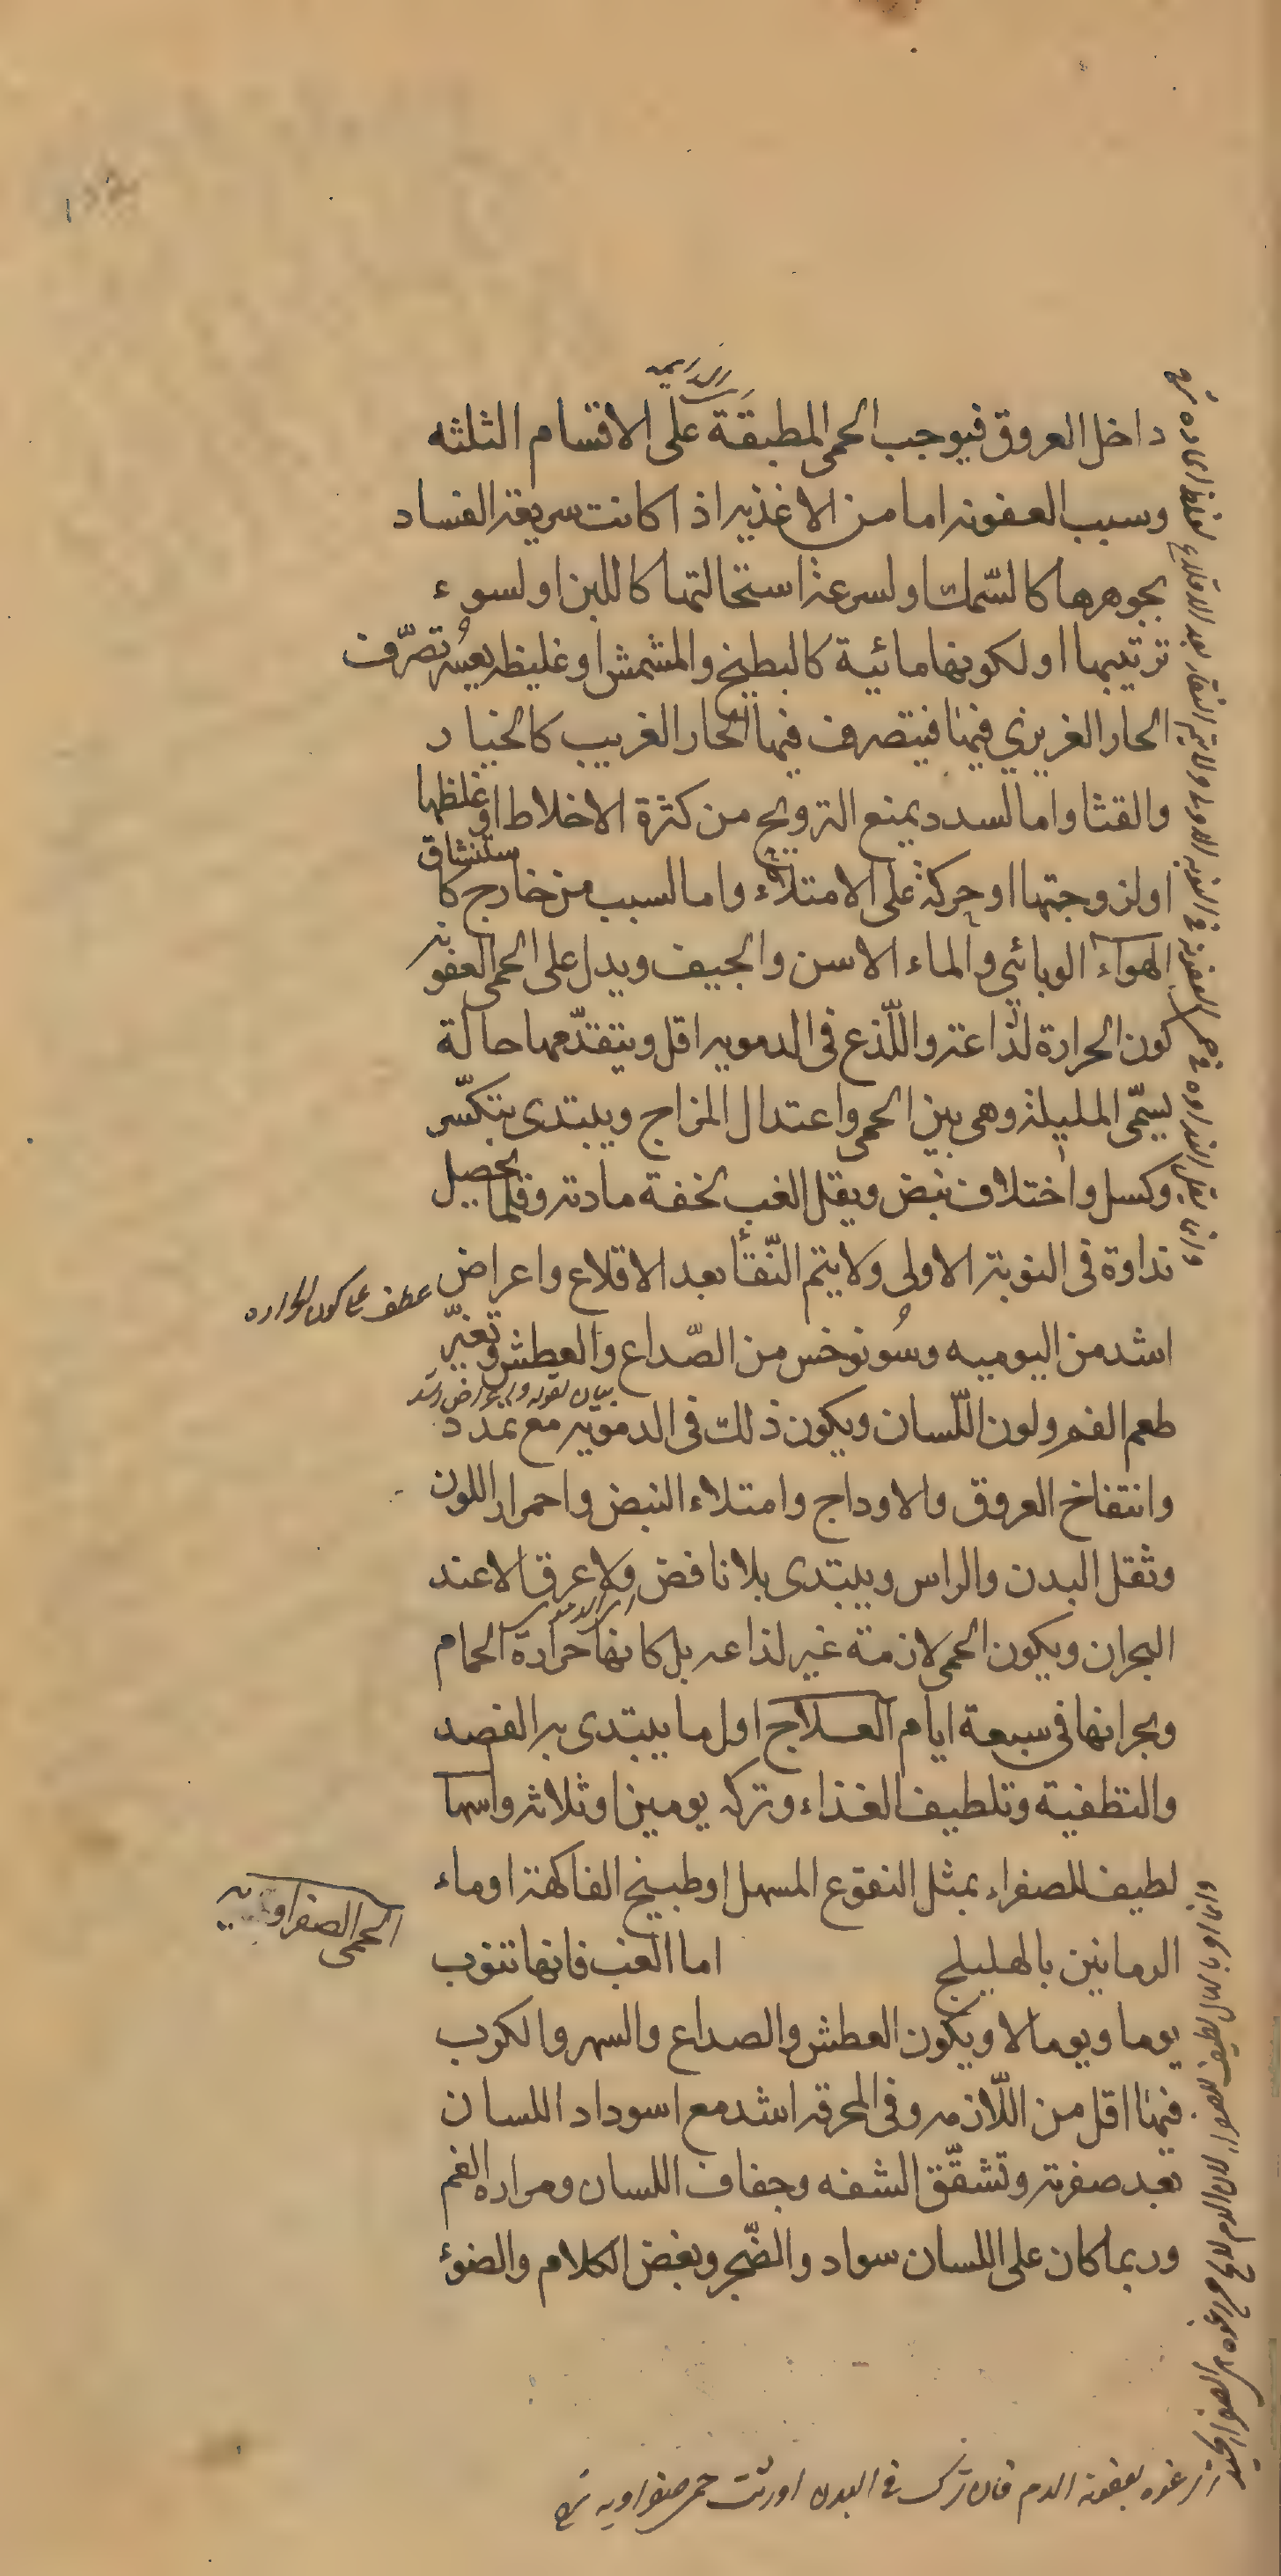 الدايمه
داخل العروق فيوجب الحمى المطبقة على الاقسام الثلثه
وسبب العفونه اما من الاغذيه اذا كانت سريعة الفساد
بجوهرها كالسّمك او لسرعة استحالتها كاللبن او لسوء
ترتيبها او لكونها مائية كالبطيخ والمشمش او غليظه يعسُر تصرّف
الحار الغريزي فيها فيتصرف فيها الحار الغريب كالخيار
والقثا واما لسدد يمنع الترويح من كثرة الاخلاط او غلظها
او لزوجتها او حركة على الامتلاء واما لسبب من خارج كاستنشاق
الهواء الوبائي والماء الاسن والجيف ويدل على الحمى العفونه
كون الحرارة لذاعة واللّذع في الدمويه اقل ويتقدّمها حالة
يسمّى المليلة وهي بين الحمى واعتدال المزاج ويبتدى بتكسّر
وكسل واختلاف نبض ويقل الغب لخفة مادته وقلما يحصل
نداوة في النوبة الاولى ولا يتم النّقأ بعد الاقلاع واعراض
عطف على كون الحراره
اشد من اليوميه وسُونوخس من الصّداع والعطش وتغيّر
بيان لقوله واعراض اشد
طعم الفم ولون اللّسان ويكون ذلك في الدمويه مع تمدد
وانتفاخ العروق والاوداج وامتلاء النبض واحمرار اللون
وثقل البدن والراس ويبتدى بلا نافض ولا عرق الا عند
البحران ويكون الحمى لازمة غير لذاعه بل كانها حرارة الحمام
وبحرانها في سبعة ايام العلاج اول ما يبتدى به الفصد
والتطفية وتلطيف الغذاء وتركه يومين او ثلاثه واسهال
لطيف للصفراء بمثل النقوع المسهل او طبيخ الفاكهة او ماء
الرمانين بالهليلج اما الغب فانها تنوب
الحمى الصفراويه
يوما ويوما لا ويكون العطش والصداع والسهر والكرب
فيها اقل من اللّازمه وفي المحرقه اشد مع اسوداد اللسان
بعد صفرته وتشقّق الشفه وجفاف اللسان ومراره الفم
وربما كان على اللسان سواد والضّجر وبغض الكلام والضوء
بعفونه الدم فان ترك في البدن اورثت حمى صفراويه